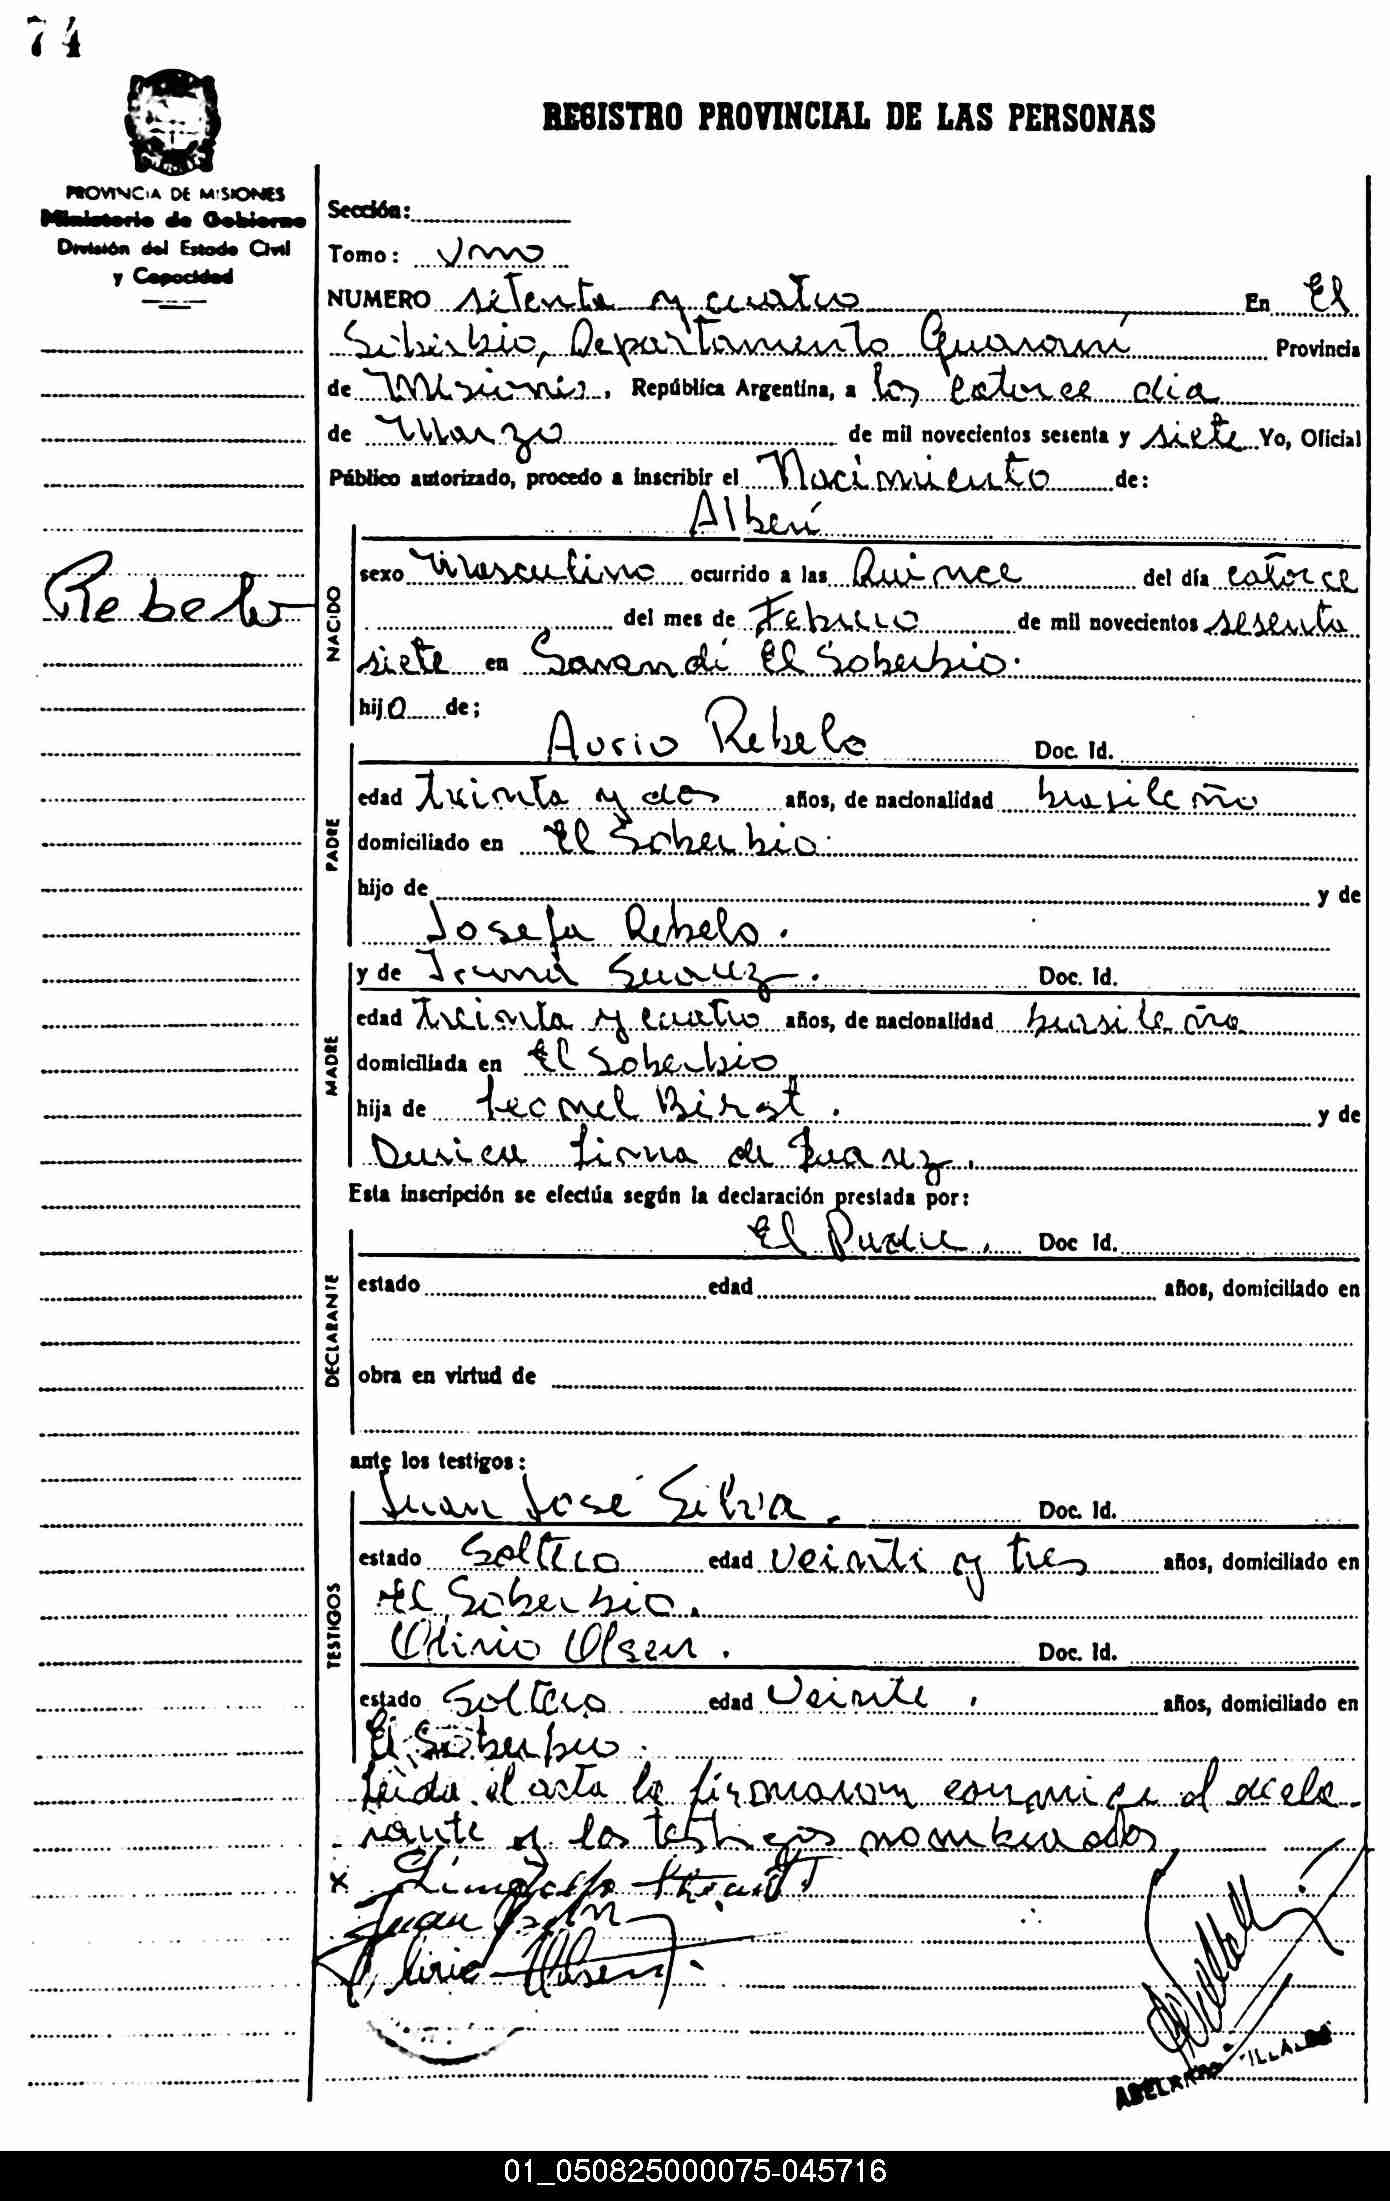 74
REGISTRO PROVINCIAL DE LAS PERSONAS
PROVINCIA DE MISIONES
Ministerio de Gobierno
División del Estado Civil
y Capacidad
Rebelo
Sección:
Tomo: Uno
NUMERO setenta y cuatro En El
Soberbio, Departamento Guaraní Provincia
de Misiones, República Argentina, a los catorce dia
de Marzo de mil novecientos sesenta y siete Yo, Oficial
Público autorizado, procedo a inscribir el Nacimiento de:
Alberí
NACIDO
sexo Masculino ocurrido a las Quince del día catorce
del mes de Febrero de mil novecientos sesenta
siete en Sarandí El Soberbio.
hijo de;
PADRE
Aurio Rebelo Doc. Id.
edad treinta y dos años, de nacionalidad brasileño
domiciliado en El Soberbio.
hijo de y de
Josefa Rebelo.
MADRE
y de Suarez. Doc. Id.
edad treinta y cuatro años, de nacionalidad brasileña
domiciliada en El Soberbio
hija de Leonel y de
de Suarez.
Esta inscripción se efectúa según la declaración prestada por:
DECLARANTE
El Padre. Doc Id.
estado edad años, domiciliado en
obra en virtud de
ante los testigos:
TESTIGOS
Juan José Silva. Doc. Id.
estado Soltero edad veinti y tres años, domiciliado en
El Soberbio.
Olirio Olsen. Doc. Id.
estado Soltero edad Veinte. años, domiciliado en
El Soberbio.
Leida el acta la firmaron conmigo el decla-
rante y los testigos nombrados
x
Juan
Olirio Olsen
ABELARDO VILLALBA
01_050825000075-045716